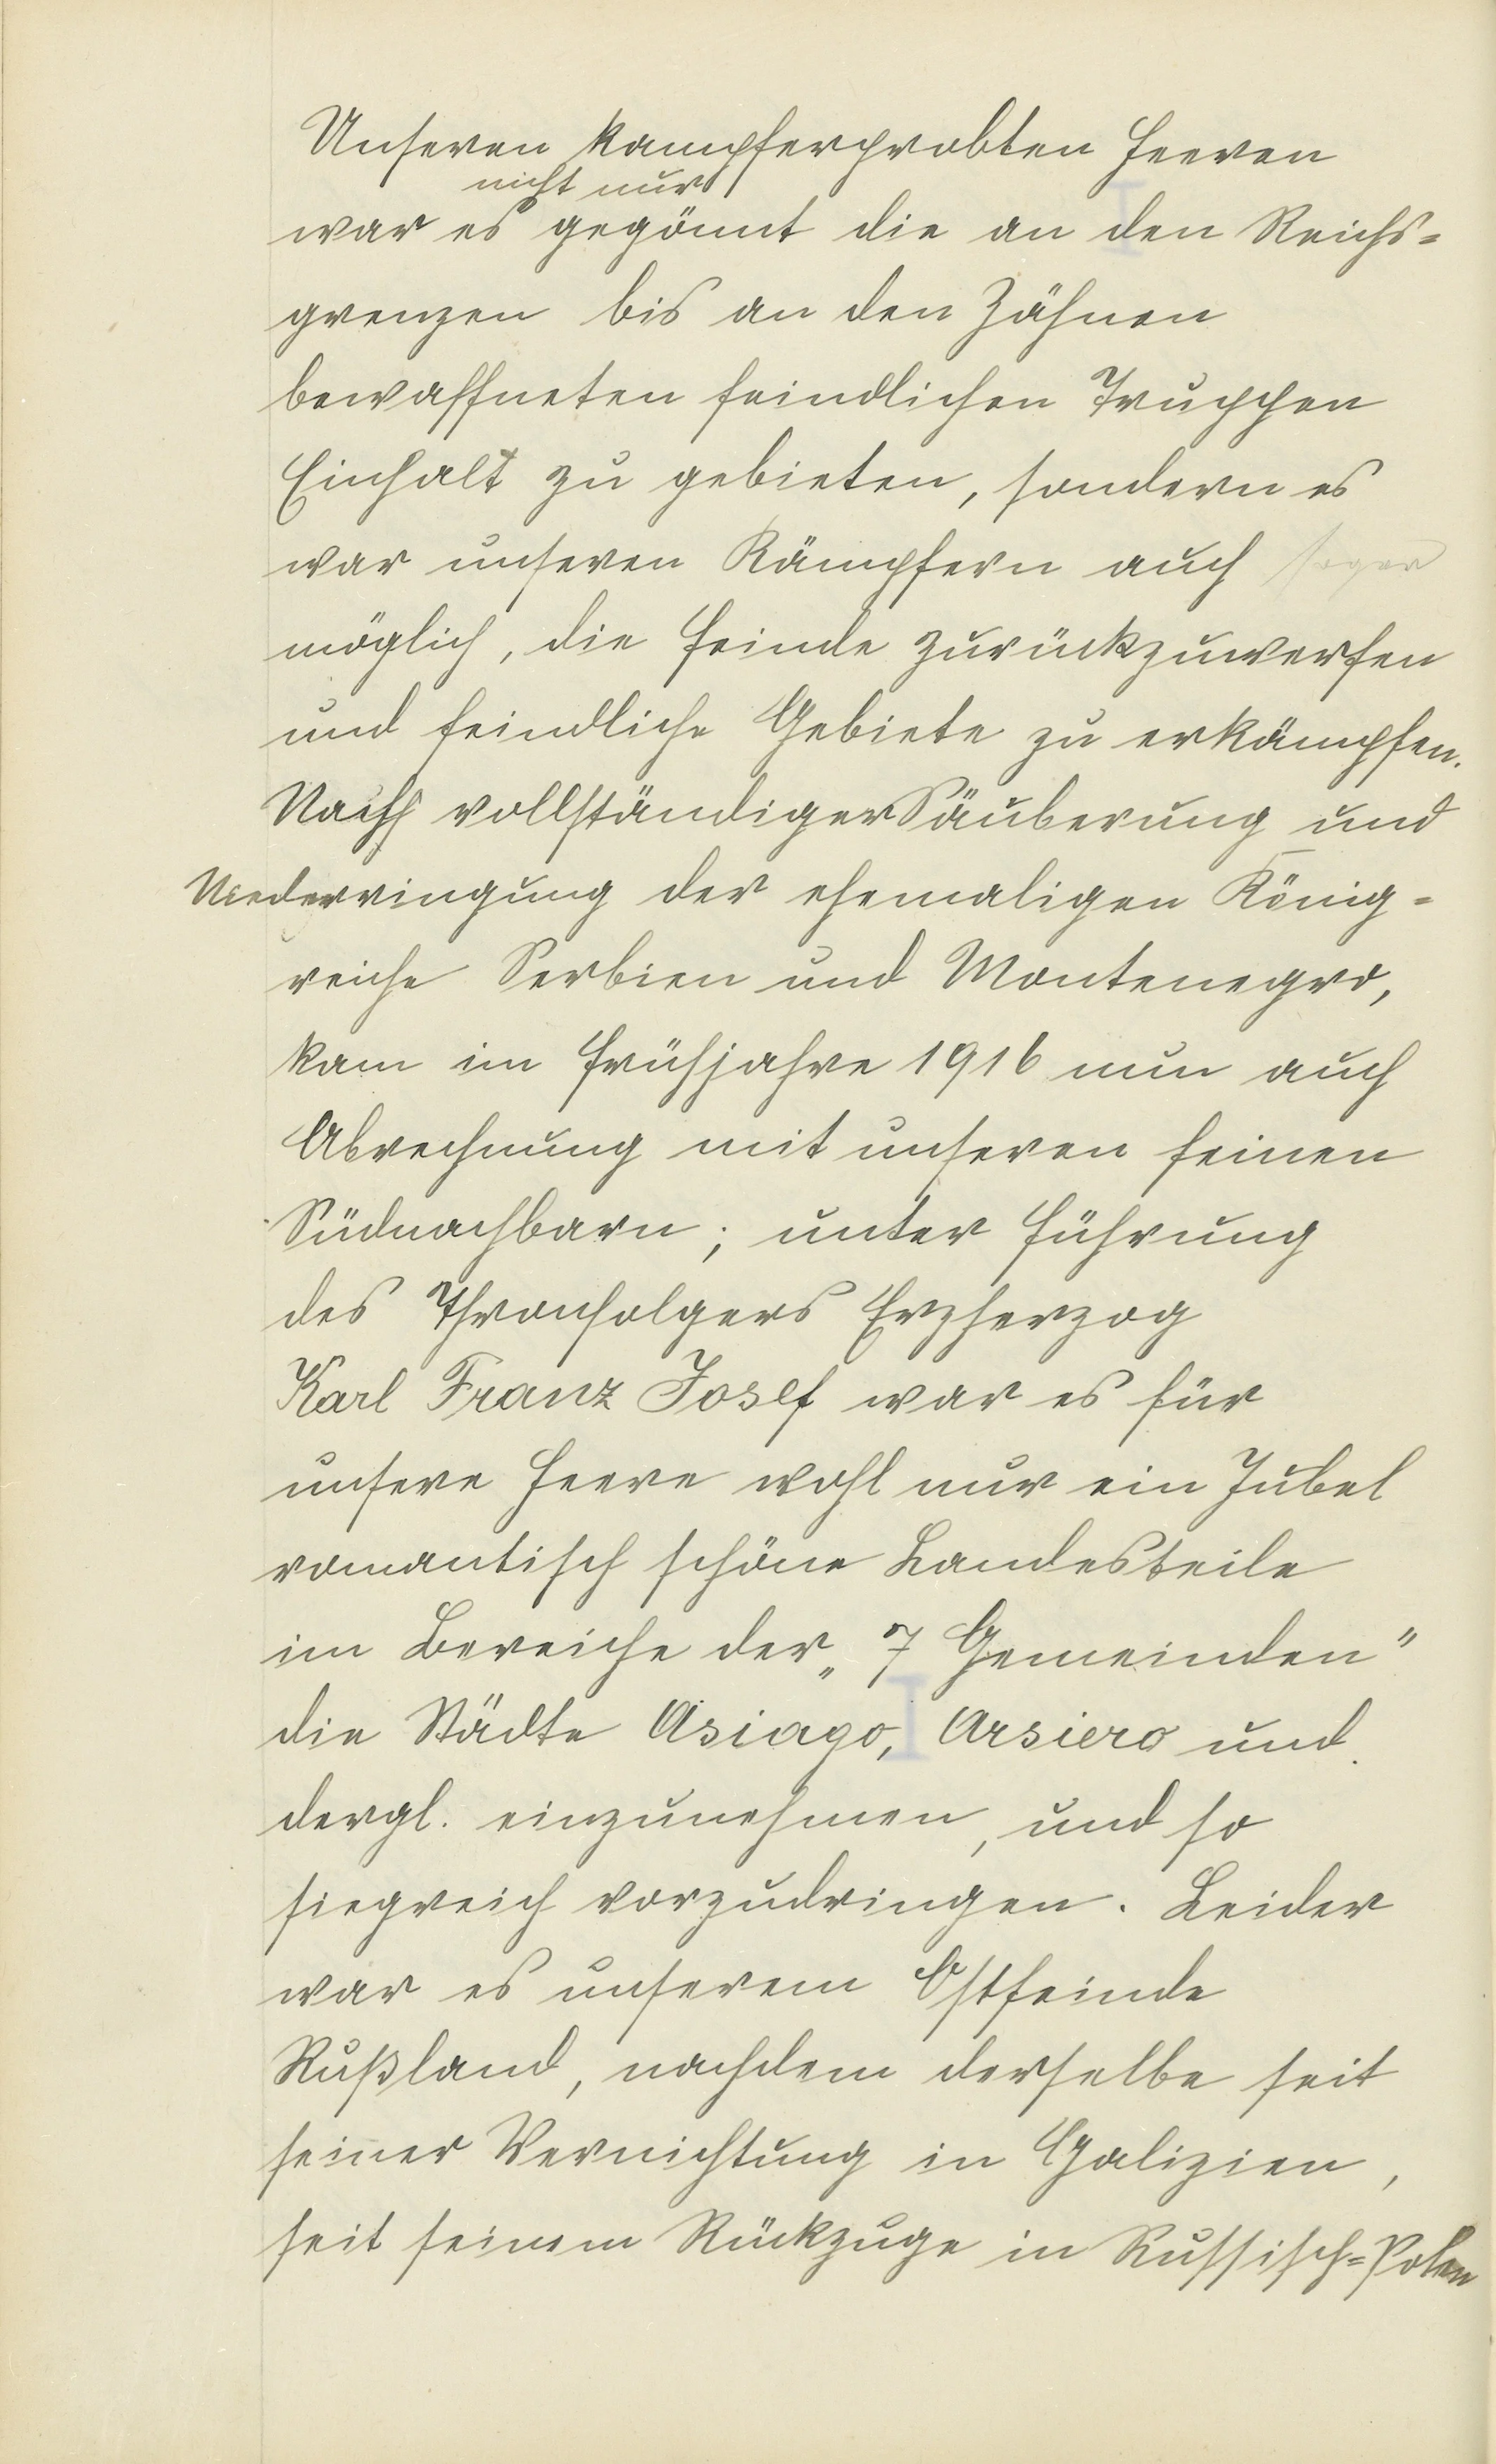 Unseren kampferprobten Heeren
nicht nur
war es gegönnt die an den Reichs=
grenzen bis an den Zähnen
bewaffneten feindlichen Truppen
Einhalt zu gebieten, sondern es
war unseren Kämpfern auch sogar
möglich, die Feinde zurückzuwerfen
und feindliche Gebiete zu erkämpfen.
Nach vollständiger Säuberung und
Niederringung der ehemaligen König=
reiche Serbien und Montenegro,
kam im Frühjahre 1916 nun auch
Abrechnung mit unseren feinen
Südnachbarn; unter Führung
des Thronfolgers Erzherzog
Karl Franz Josef war es für
unsere Heere wohl nur ein Jubel
romantisch schöne Landesteile
im Bereiche der „7 Gemeinden"
die Städte Asiago, Arsiero und
dergl. einzunehmen, und so
siegreich vorzudringen. Leider
war es unserem Ostfeinde
Rußland, nachdem derselbe seit
seiner Vernichtung in Galizien,
seit seinem Rückzuge in Russisch=Polen